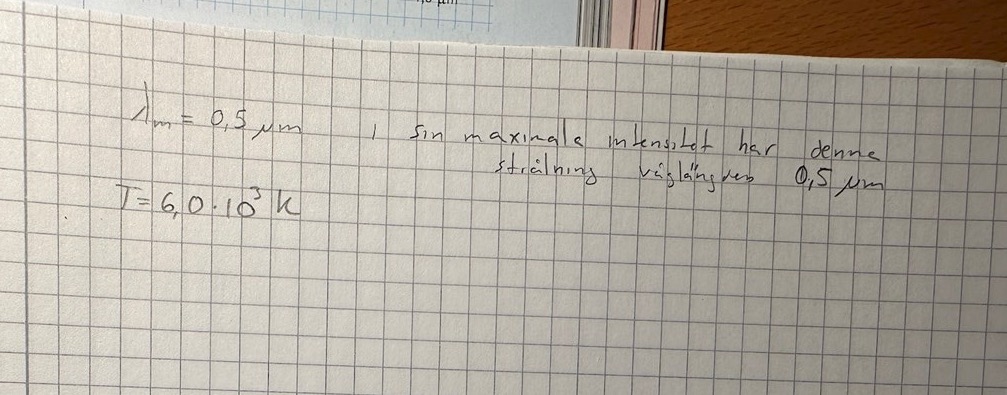 µm
λm = 0,5 µm
I sin maximala intensitet har denna
strålning våglängden 0,5 µm
T = 6,0 · 10³ K